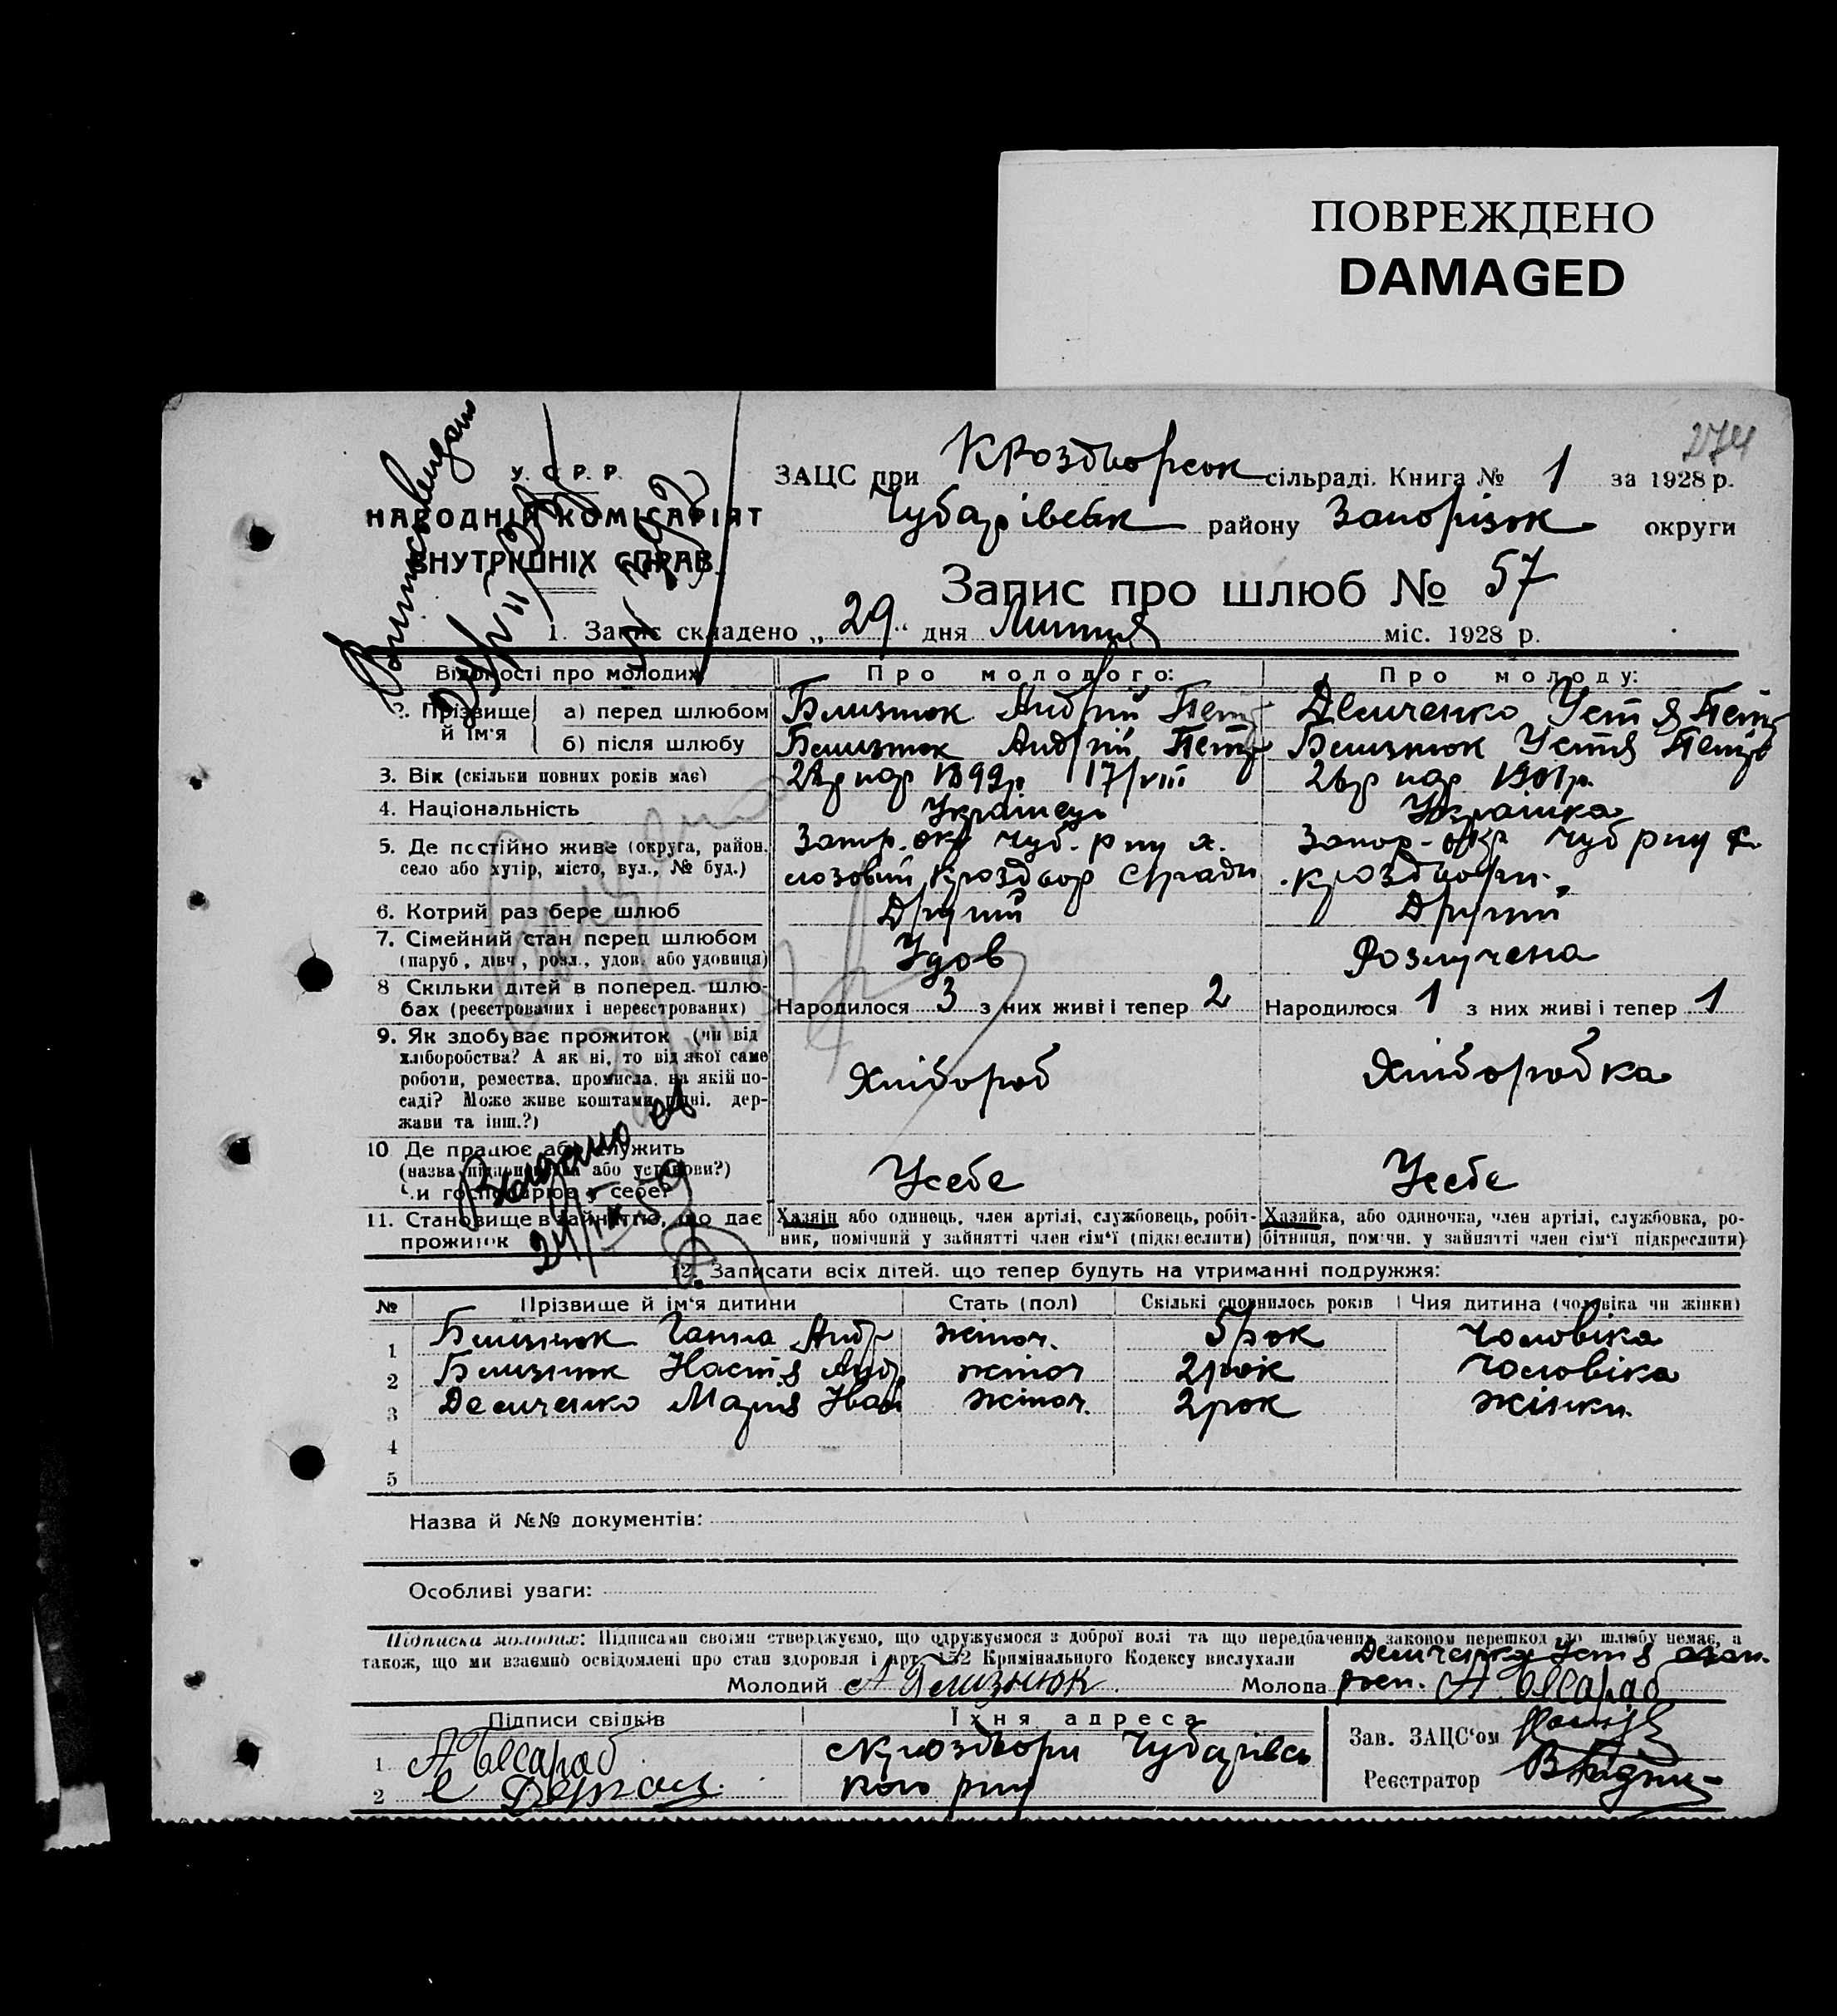 ПОВРЕЖДЕНО
DAMAGED
274
У. С. Р. Р.
НАРОДНІЙ КОМІСАРІЯТ
ВНУТРІШНІХ СПРАВ.
ЗАЦС при Кроздворськ сільраді. Книга № 1 за 1928 р.
Чубарівськ району Запоріжок округи
Запис про шлюб № 57
1. Запис складено „29“ дня Липня міс. 1928 р.
Відомості про молодих Про молодого: Про молоду:
2. Прізвище й ім'я
а) перед шлюбом Близнюк Андрій Петр Демченко Устя Петр
б) після шлюбу Близнюк Андрій Петр Близнюк Устя Петр
3. Вік (скільки повних років має) нар 1899р 17/VIII нар 1901р.
4. Національність Українець Українка
5. Де постійно живе (округа, район, село або хутір, місто, вул., № буд.) Запор. окр Чуб. р-ну х. Запор-окр Чуб р-ну с.
лозовий Кроздвор с/ради Кроздвори
6. Котрий раз бере шлюб Другий Другий
7. Сімейний стан перед шлюбом (паруб., дівч., розл., удов. або удовиця) Удов Розлучена
8 Скільки дітей в поперед. шлюбах (реєстрованих і нереєстрованих) Народилося 3 з них живі і тепер 2 Народилося 1 з них живі і тепер 1
9. Як здобуває прожиток (чи від хліборобства? А як ні, то від якої саме роботи, ремества, промисла, на якій посаді? Може живе коштами рідні, держави та інш.?) Хлібороб Хлібробка
10 Де працює або служить (назва підприємства або установи?) Чи господарює у себе? Усебе Усебе
11. Становище в зайнятію, що дає прожиток
Хазяїн або одинець, член артілі, службовець, робітник, помічний у зайнятті член сім'ї (підкреслити)
Хазяйка, або одиночка, член артілі, службовка, робітниця, помічн. у зайнятті член сім'ї підкреслити)
Видано
24/IX 59
12. Записати всіх дітей, що тепер будуть на утриманні подружжя:
№ Прізвище й ім'я дитини Стать (пол) Скількі сповнилось років Чия дитина (чоловіка чи жінки)
1 Близнюк Ганна Андр жіноч. 5рок Чоловіка
2 Близнюк Настя Андр жіноч 2рок Чоловіка
3 Демченко Марія Іван жіноч. 2рок жінки
4
5
Назва й №№ документів:
Особливі уваги:
Підписка молодих: Підписами своїми стверджуємо, що одружуємося з доброї волі та що передбачених законом перешкод до шлюбу немає, а
також, що ми взаємно освідомлені про стан здоровля і арт. 152 Кримінального Кодексу вислухали
Молодий А Близнюк Молода Демченко Устя
росп.
Підписи свідків Їхня адреса Зав. ЗАЦС'ом
1 Чубарівсь
2 кого р-ну Реєстратор